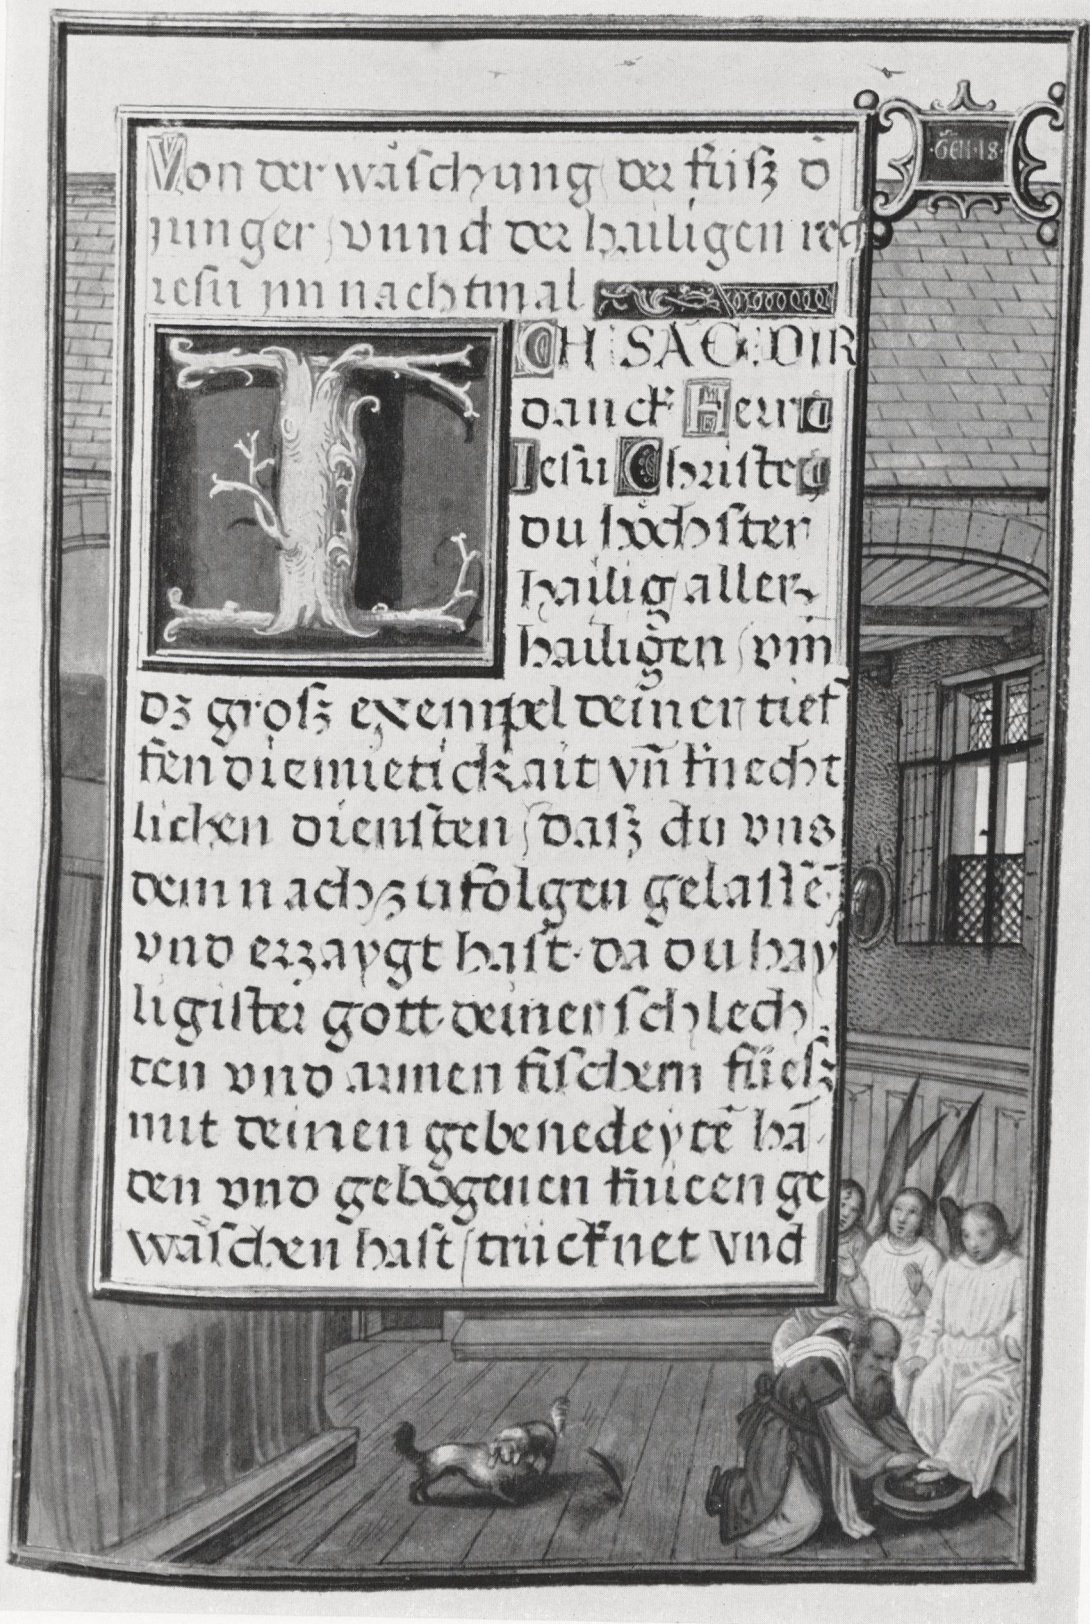 GEN·18·
Von der wäschung der füsz d̄
iunger / vnnd der hailigen red
iesu im nachtmal
ICH SAG DIR
danck Herre
Iesu Christe
du höchster
hailig aller
hailigen / vm̄
dz grosz exempel deiner tief
fen diemietickait vn̄ knecht
lichen diensten / dasz du vns
dem nachzufolgen gelassē
vnd erzaygt hast · da du hay
ligister gott deiner schlech
ten vnd armen fischern füesz
mit deinen gebenedeytē hā
den vnd gebogenen knieen ge
wäschen hast / trücknet vnd